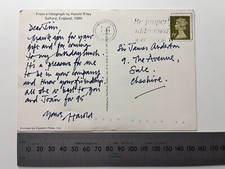 From a lithograph by Harold Riley
Salford, England, 1980.
Dear Jim,
Thank you for your
gift and for coming
to my birthday lunch.
It's a pleasure for me
to be in your company
and know your friendship.
All the very best to you
and Joan for 95
Yours Harold
Be properly
addressed
Sir James Anderton
9. The Avenue,
Sale.
Cheshire.